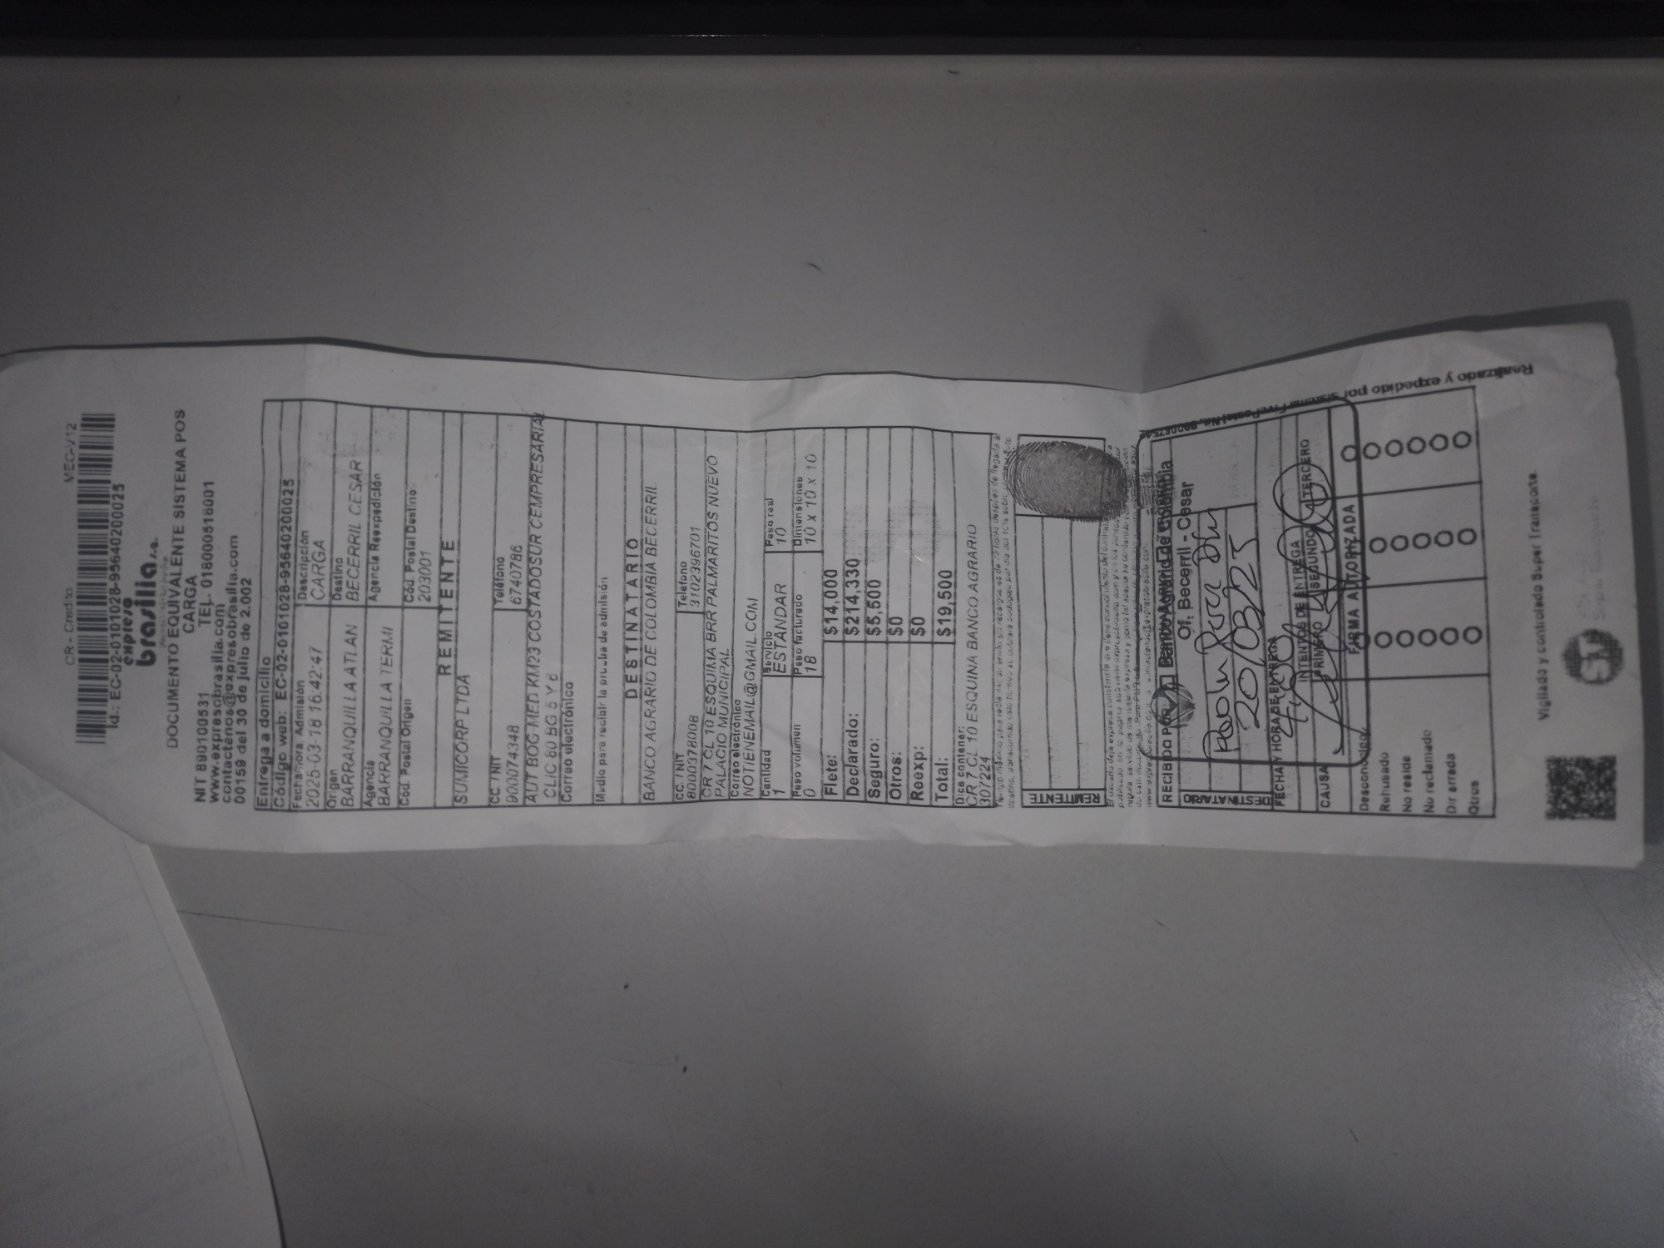 CR - Credito MEC-V12
Id.: EC-02-0101028-95640200025
expreso
brasilia s.a.
DOCUMENTO EQUIVALENTE SISTEMA POS
CARGA
NIT 890100531 TEL. 018000516001
www.expresobrasilia.com
contactenos@expresobrasilia.com
00159 del 30 de julio de 2.002
Entrega a domicilio
Código web: EC-02-0101028-95640200025
Fecha/hora Admisión Descripción
2025-03-18 16:42:47 CARGA
Origen Destino
BARRANQUILLA ATLAN BECERRIL CESAR
Agencia Agencia Reexpedición
BARRANQUILLA TERMI
Cód. Postal Origen Cód. Postal Destino:
203001
REMITENTE
SUMICORP LTDA
CC. / NIT Teléfono
900074348 6740786
AUT BOG MED KM23 COSTADOSUR CEMPRESARIAL
CLIC 80 BG 5 Y 6
Correo electrónico
Medio para recibir la prueba de admisión
DESTINATARIO
BANCO AGRARIO DE COLOMBIA BECERRIL
CC. / NIT Teléfono
8000378008 3102396701
CR 7 CL 10 ESQUIMA BRR PALMARITOS NUEVO
PALACIO MUNICIPAL
Correo electrónico
NOTIENEMAIL@GMAIL.COM
Cantidad Servicio Peso real
1 ESTANDAR 10
Peso volumen Peso facturado Dimensiones
0 18 10 x 10 x 10
Flete: $14,000
Declarado: $214,330
Seguro: $5,500
Otros: $0
Reexp: $0
Total: $19,500
Dice contener:
CR 7 CL 10 ESQUINA BANCO AGRARIO
307224
REMITENTE
DESTINATARIO
RECIBIDO POR
Banco Agrario de Colombia
Of. Becerril - Cesar
20/03/25
FECHA Y HORA DE ENTREGA
INTENTOS DE ENTREGA
CAUSA PRIMERO SEGUNDO TERCERO
FIRMA AUTORIZADA
Desconocido
Rehusado
No reside
No reclamado
Dir errada
Otros
Realizado y expedido por sistema FivePostal Nit.
Vigilado y controlado Super Transporte